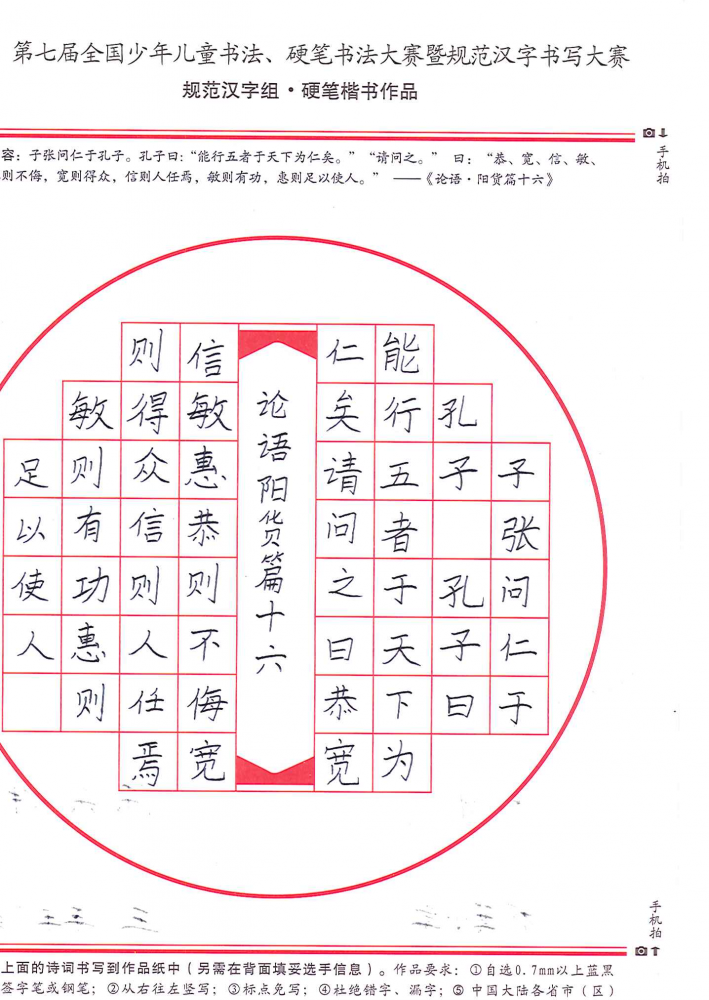 第七届全国少年儿童书法、硬笔书法大赛暨规范汉字书写大赛
规范汉字组·硬笔楷书作品
手机拍
容：子张问仁于孔子。孔子曰：“能行五者于天下为仁矣。”“请问之。” 曰：“恭、宽、信、敏、
则不侮，宽则得众，信则人任焉，敏则有功，惠则足以使人。” ——《论语·阳货篇十六》
子张问仁于
孔子 孔子曰
能行五者于天下为
仁矣请问之曰恭宽
论语阳货篇十六
信敏惠恭则不侮宽
则得众信则人任焉
敏则有功惠则
足以使人
手机拍
上面的诗词书写到作品纸中（另需在背面填妥选手信息）。作品要求：①自选0.7mm以上蓝黑
签字笔或钢笔；②从右往左坚写；③标点免写；④杜绝错字、漏字；⑤ 中国大陆各省市（区）